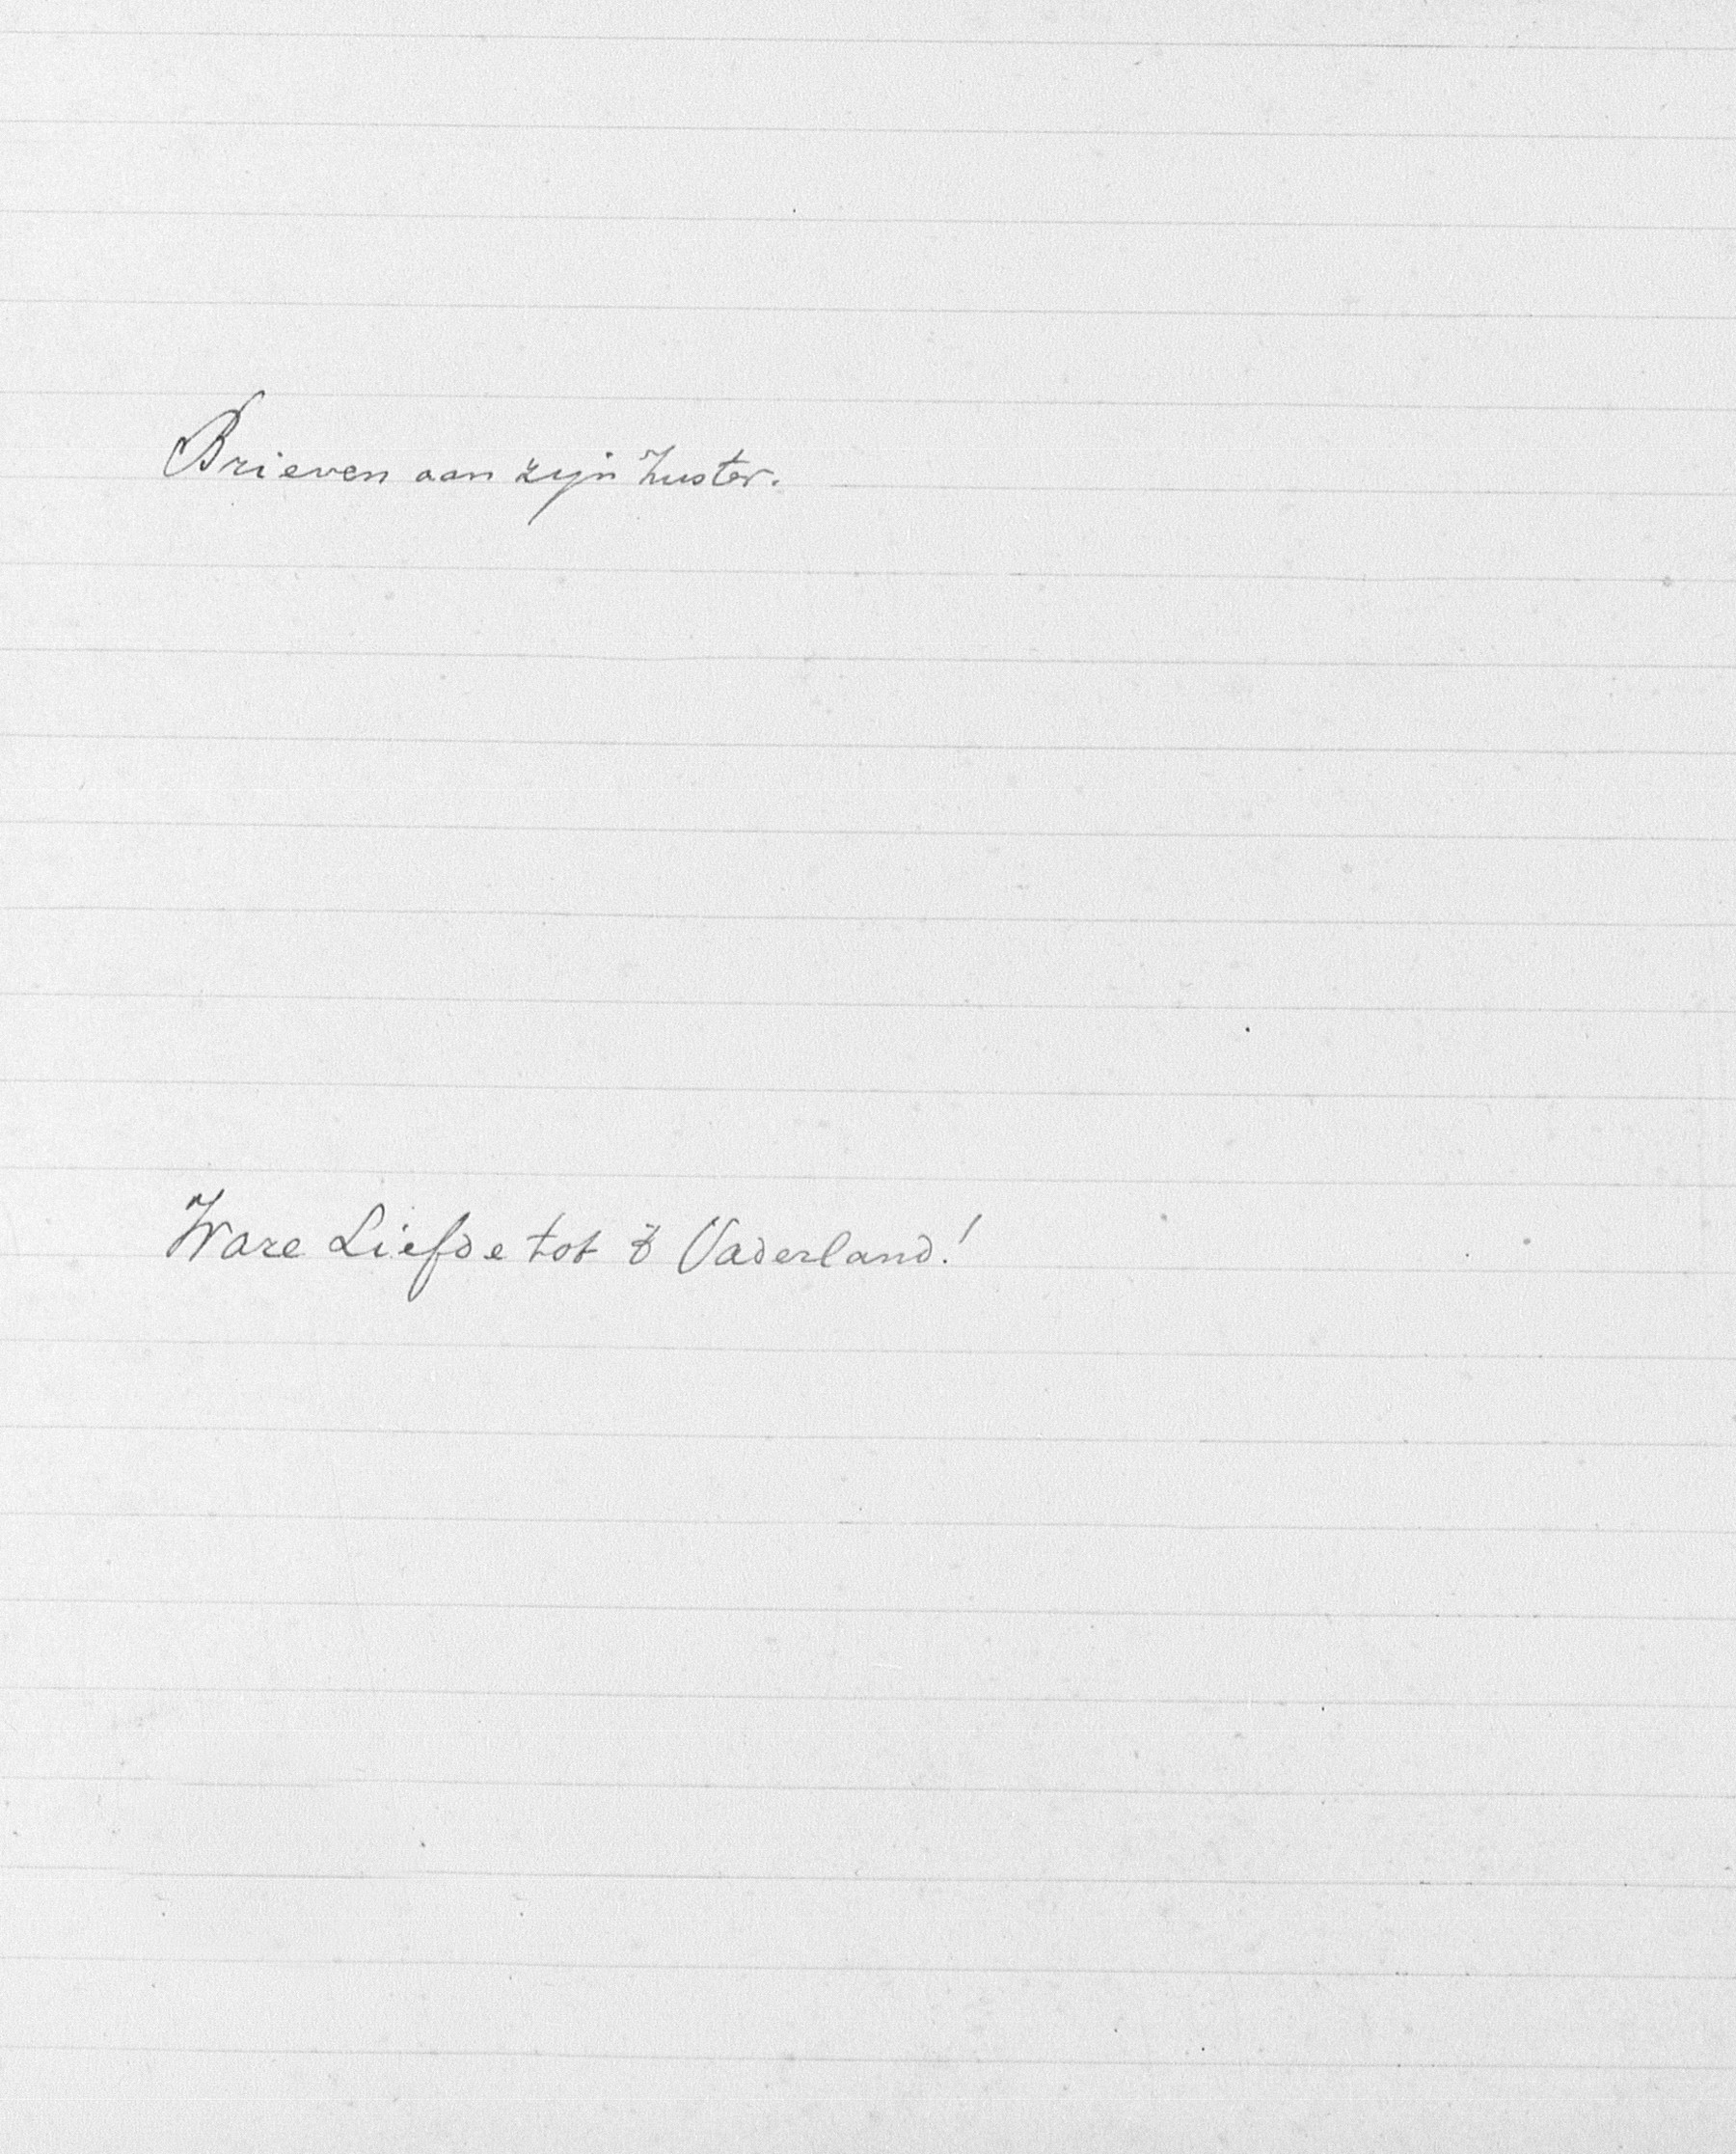 Brieven aan zijn Zuster.
Ware Liefde tot 't Vaderland!